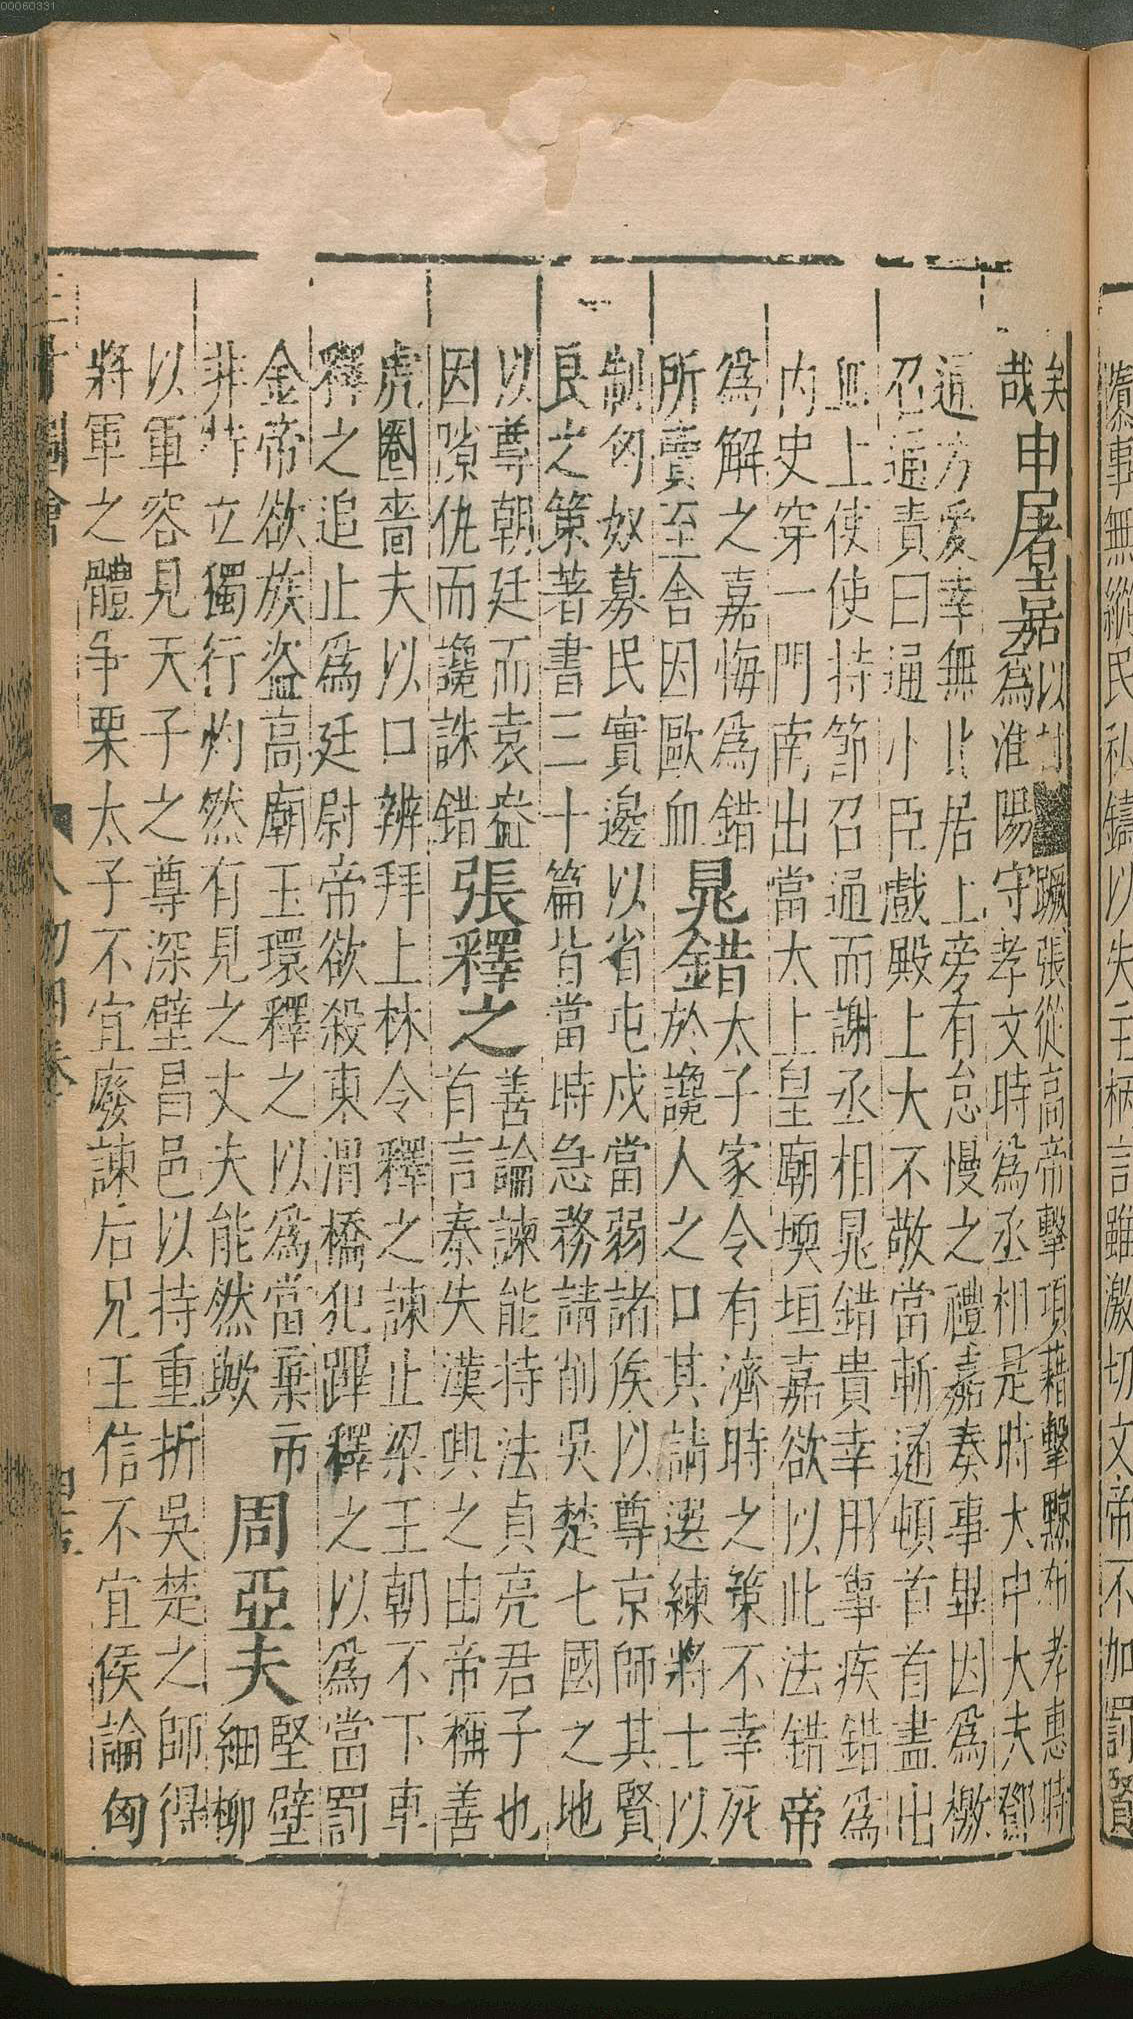 隳事無縱民私鑄以失王柄言雖激切文帝不加罰賢
矣
哉
申屠嘉
以材蹶張從高帝擊項籍擊黥布孝惠時
爲淮陽守孝文時爲丞相是時大中大夫鄧
通方愛幸無比居上旁有怠慢之禮嘉奏事畢因爲檄
召通責曰通小臣戲殿上大不敬當斬通頓首首盡出
血上使使持節召通而謝丞相晁錯貴幸用事疾錯爲
内史穿一門南出當太上皇廟堧垣嘉欲以此法錯帝
爲解之嘉悔爲錯
所賣至舍因歐血
晁錯
太子家令有濟時之策不幸死
於讒人之口其請選練將士以
制匈奴募民實邊以省屯戍當弱諸侯以尊京師其賢
良之策著書三十篇皆當時急務請削吳楚七國之地
以尊朝廷而袁盎
因隙仇而讒誅錯
張釋之
善論諫能持法貞亮君子也
首言秦失漢興之由帝稱善
虎圈嗇夫以口辨拜上林令釋之諫止梁王朝不下車
釋之追止爲廷尉帝欲殺東渭橋犯蹕釋之以爲當罰
金帝欲族盜高廟玉環釋之以爲當棄市
非特立獨行灼然有見之丈夫能然歟
周亞夫
堅壁
細柳
以軍容見天子之尊深壁昌邑以持重折吳楚之師得
將軍之體爭栗太子不宜廢諫后兄王信不宜侯論匈
三才圖會
人物四卷
00060331